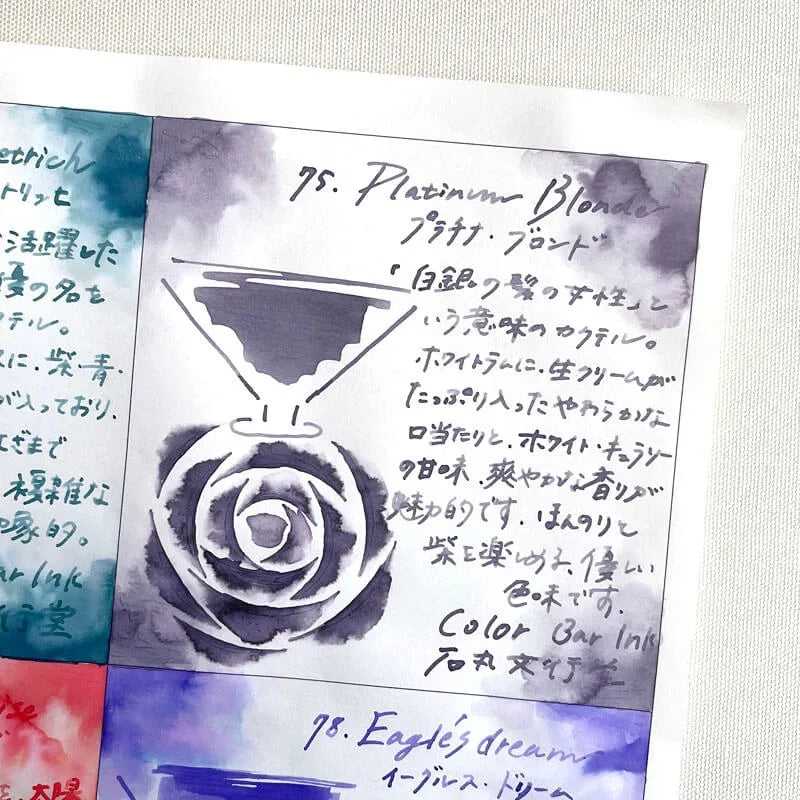 etrich
トリッヒ
活躍した
優の名を
テル。
スに、紫・青・
が入っており、
にぎまで
複雑な
印象的。
Bar Ink
文行堂
75. Platinum Blonde
プラチナ・ブロンド
「白銀の髪の女性」と
いう意味のカクテル。
ホワイトラムに、生クリームが
たっぷり入ったやわらかな
口当たりと、ホワイト・キュラソー
の甘味、爽やかな香りが
魅力的です。ほんのりと
紫を楽しめる、優しい
色味です。
Color Bar Ink
石丸文行堂
太陽
78. Eagle's dream
イーグルス・ドリーム